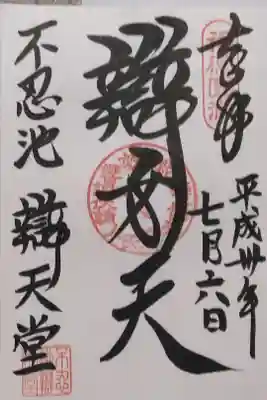 奉拝
平成卅年
七月六日
辯才天
不忍池 辯天堂